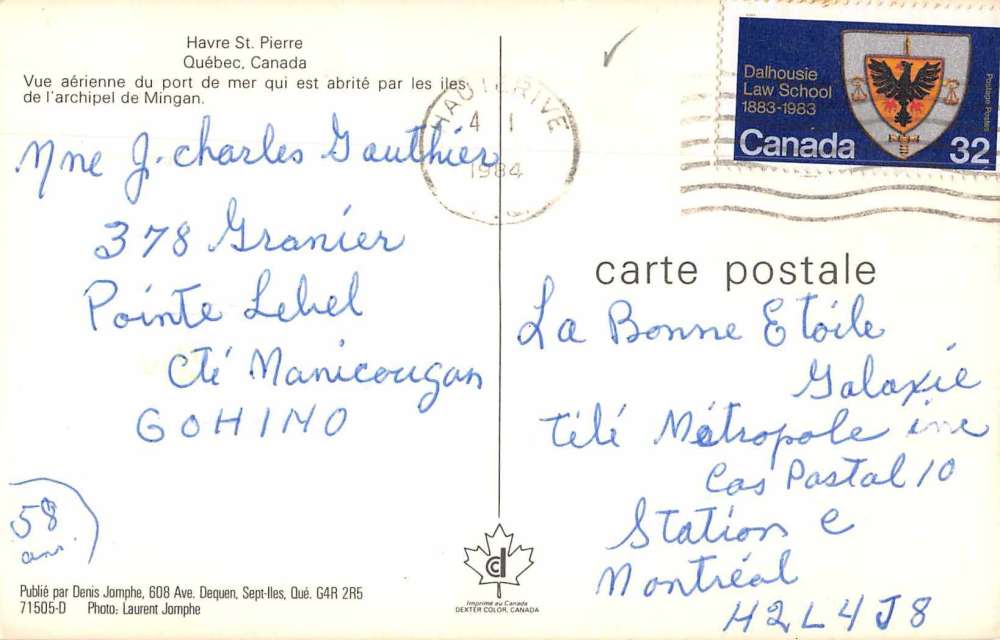 Havre St. Pierre
Québec, Canada
Vue aérienne du port de mer qui est abrité par les iles
de l'archipel de Mingan.
Mne J. Charles Gauthier
378 Granier
Pointe Lebel
Cté Manicougan
G0H1N0
58
ans
Publié par Denis Jomphe, 608 Ave. Dequen, Sept-Iles, Qué. G4R 2R5
71505-D Photo: Laurent Jomphe
HAUTERIVE
4 I
1984
P.Q.
Dalhousie
Law School
1883-1983
Postage Postes
Canada 32
carte postale
La Bonne Etoile
Galaxie
Télé Métropole inc
Cas Postal 10
Station C
Montréal
H2L4J8
cd
Imprimé au Canada
DEXTER COLOR, CANADA